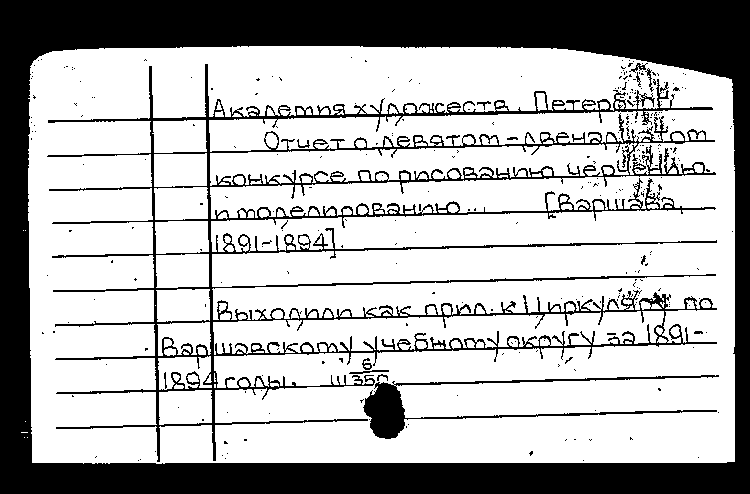 Академия художеств. Петербург
Отчет о девятом-двенадцатом
конкурсе по рисованию, черчению
и моделированию... [Варшава,
1891-1894].
Выходили как прил. к Циркуляру по
Варшавскому учебному округу за 1891-
1894 годы. Ш 6/350